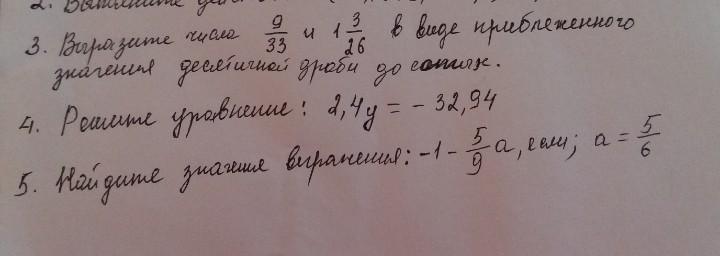 2. Выполните
3. Выразите числа 9/33 и 1 3/26 в виде приближенного
значения десятичной дроби до сотых.
4. Решите уравнение: 2,4y = - 32,94
5. Найдите значение выражения: -1 - 5/9 a, если; a = 5/6